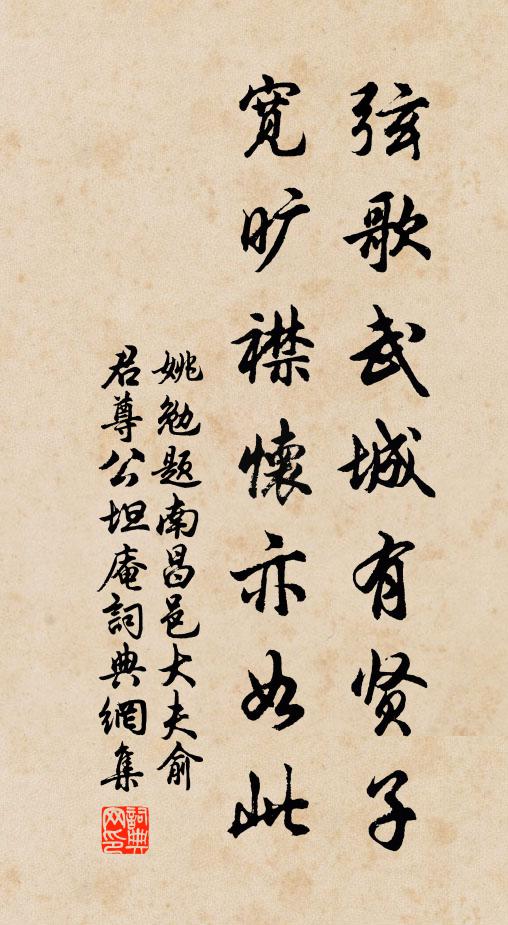 弦歌武城有贤子
宽旷襟懷亦如此
姚勉题南昌邑大夫俞
君尊公坦庵詞典網集
詞典网印